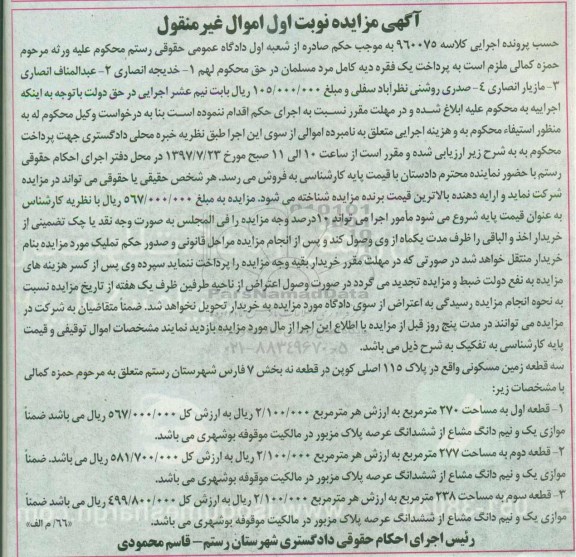 آگهی مزایده نوبت اول اموال غیر منقول
حسب پرونده اجرایی کلاسه ۹۶۰۰۷۵ به موجب حکم صادره از شعبه اول دادگاه عمومی حقوقی رستم محکوم علیه ورثه مرحوم
حمزه کمالی ملزم است به پرداخت یک فقره دیه کامل مرد مسلمان در حق محکوم لهم ۱- خدیجه انصاری ۲- عبدالمناف انصاری
۳- مازیار انصاری ۴- صدری روشنی نظرآباد سفلی و مبلغ ۱۰۵/۰۰۰/۰۰۰ ریال بابت نیم عشر اجرایی در حق دولت با توجه به اینکه
اجراییه به محکوم علیه ابلاغ شده و در مهلت مقرر نسبت به اجرای حکم اقدام ننموده است بنا به درخواست وکیل محکوم له به
منظور استیفاء محکوم به و هزینه اجرایی متعلق به نامبرده اموالی از سوی این اجرا طبق نظریه خبره محلی دادگستری جهت پرداخت
محکوم به به شرح زیر ارزیابی شده و مقرر است از ساعت ۱۰ الی ۱۱ صبح مورخ ۱۳۹۷/۷/۲۳ در محل دفتر اجرای احکام حقوقی
رستم با حضور نماینده محترم دادستان با قیمت پایه کارشناسی به فروش می رسد. هر شخص حقیقی یا حقوقی می تواند در مزایده
شرکت نماید و ارایه دهنده بالاترین قیمت برنده مزایده شناخته می شود. مزایده به مبلغ ۵۶۷/۰۰۰/۰۰۰ ریال با نظریه کارشناس
به عنوان قیمت پایه شروع می شود مأمور اجرا می تواند ۱۰درصد وجه مزایده را فی المجلس به صورت وجه نقد یا چک تضمینی از
خریدار اخذ و الباقی را ظرف مدت یکماه از وی وصول کند و پس از انجام مزایده مراحل قانونی و صدور حکم تملیک مورد مزایده بنام
خریدار منتقل خواهد شد در صورتی که در مهلت مقرر خریدار بقیه وجه مزایده را پرداخت ننماید سپرده وی پس از کسر هزینه های
مزایده به نفع دولت ضبط و مزایده تجدید می گردد در صورت وصول اعتراض از ناحیه طرفین ظرف یک هفته از تاریخ مزایده نسبت
به نحوه انجام مزایده رسیدگی به اعتراض از سوی دادگاه مورد مزایده به خریدار تحویل نخواهد شد. ضمناً متقاضیان به شرکت در
مزایده می توانند در مدت پنج روز قبل از مزایده با اطلاع این اجرا از مال مورد مزایده بازدید نمایند مشخصات اموال توقیفی و قیمت
پایه کارشناسی به تفکیک به شرح ذیل می باشد.
سه قطعه زمین مسکونی واقع در پلاک ۱۱۵ اصلی کوپن در قطعه نه بخش ۷ فارس شهرستان رستم متعلق به مرحوم حمزه کمالی
با مشخصات زیر:
۱- قطعه اول به مساحت ۲۷۰ مترمربع به ارزش هر مترمربع ۲/۱۰۰/۰۰۰ ریال به ارزش کل ۵۶۷/۰۰۰/۰۰۰ ریال می باشد ضمناً
موازی یک و نیم دانگ مشاع از ششدانگ عرصه پلاک مزبور در مالکیت موقوفه بوشهری می باشد.
۲- قطعه دوم به مساحت ۲۷۷ مترمربع به ارزش هر مترمربع ۲/۱۰۰/۰۰۰ ریال به ارزش کل ۵۸۱/۷۰۰/۰۰۰ ریال می باشد. ضمناً
موازی یک و نیم دانگ مشاع از ششدانگ عرصه پلاک مزبور در مالکیت موقوفه بوشهری می باشد.
۳- قطعه سوم به مساحت ۲۳۸ مترمربع به ارزش هر مترمربع ۲/۱۰۰/۰۰۰ ریال به ارزش کل ۴۹۹/۸۰۰/۰۰۰ ریال می باشد ضمناً
موازی یک و نیم دانگ مشاع از ششدانگ عرصه پلاک مزبور در مالکیت موقوفه بوشهری می باشد. ۶۶۰/م الف
رئیس اجرای احکام حقوقی دادگستری شهرستان رستم- قاسم محمودی
ParsNamadData
۰۲۱-۸۸۳۴۹۶۷۰-۵